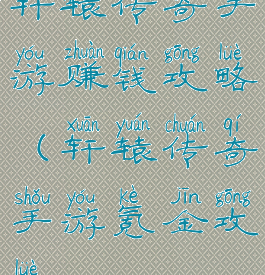 轩辕传奇手
yóu zhuàn qián gōng lüè
游赚钱攻略
xuān yuán chuán qí
（轩辕传奇
shǒu yóu kè jīn gōng
手游氪金攻
lüè